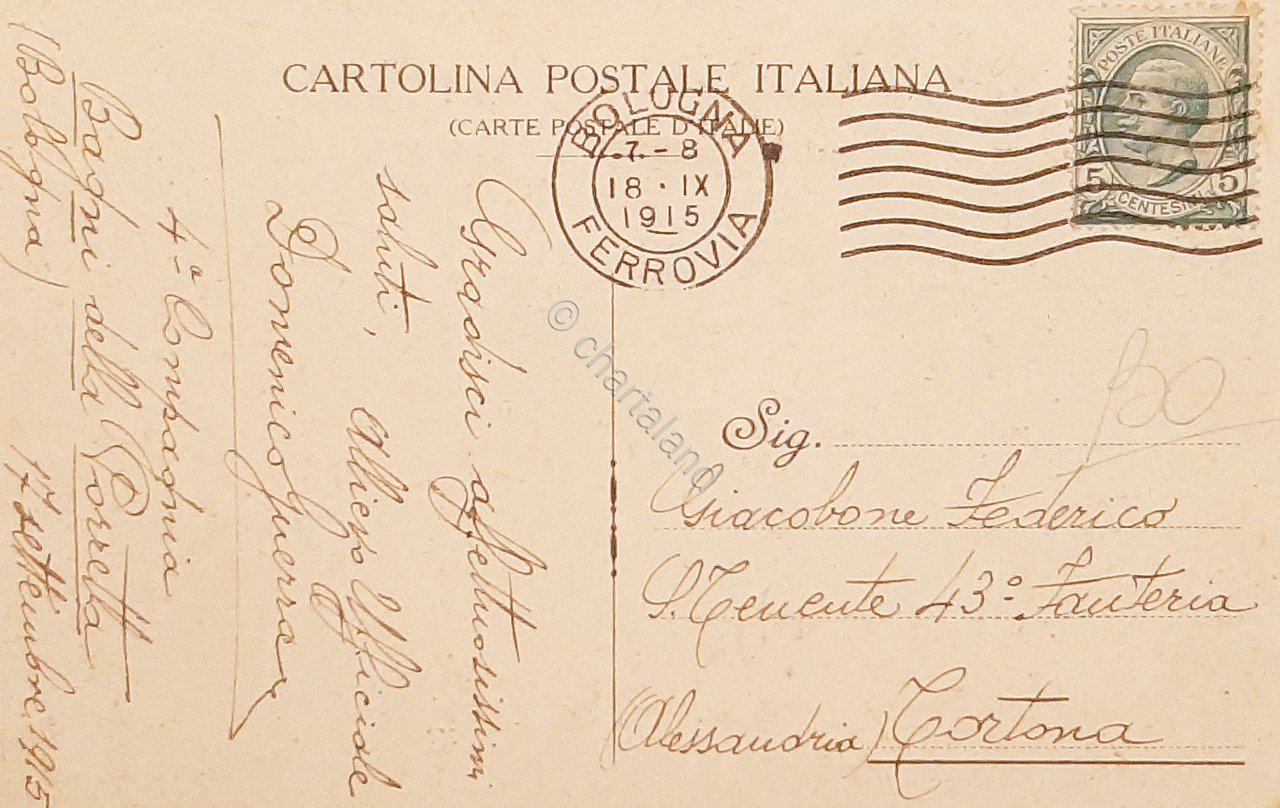 CARTOLINA POSTALE ITALIANA
(CARTE POSTALE D'ITALIE)
BOLOGNA
7-8
18·IX
1915
FERROVIA
POSTE ITALIANE
5 5
CENTESIMI
Gradisci affettuosissimi
saluti, Allievo Ufficiale
Domenico Guerra
4ª Compagnia
Bagni della Porretta
(Bologna) 17 settembre 1915
Sig.
Giacobone Federico
S. Tenente 43° Fanteria
(Alessandria) Tortona
© chartaland